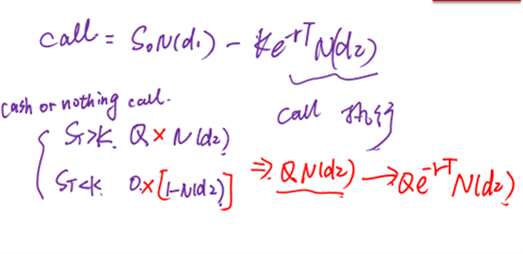 call = S₀N(d₁) - Ke^-rT N(d₂)
cash or nothing call.
call 执行
S_T>K. Q × N(d₂)
S_T<K 0.×[1-N(d₂)] ⇒ QN(d₂) → Qe^-rT N(d₂)